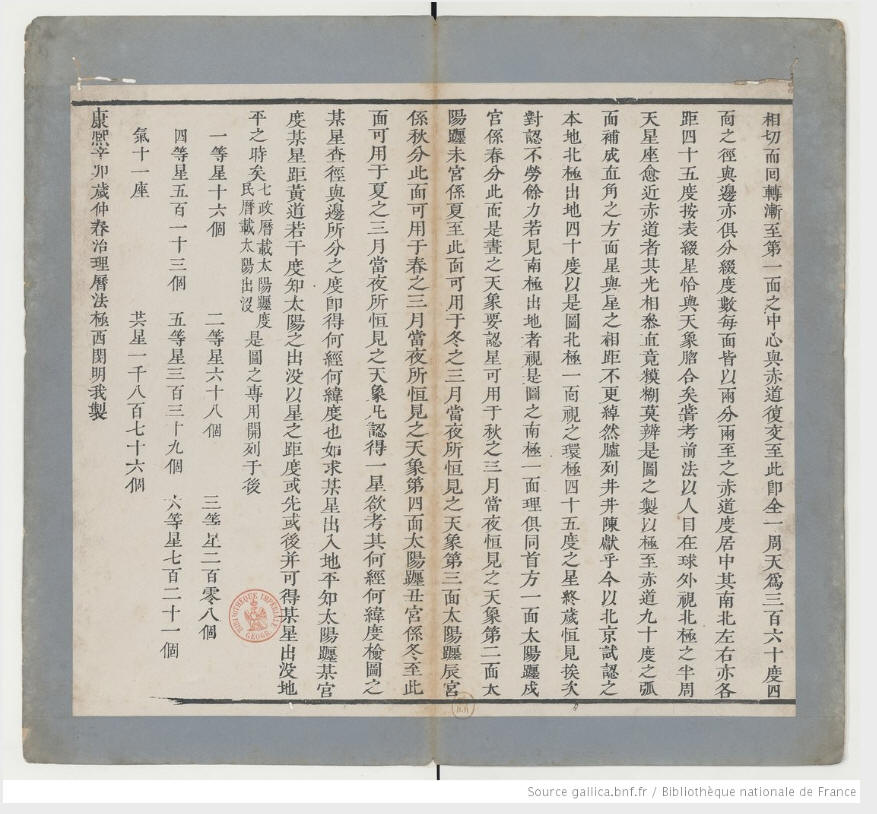 相切而回轉漸至第一面之中心與赤道復交至此即全一周天爲三百六十度四
面之徑與邊亦俱分綴度數每面皆以兩分兩至之赤道度居中其南北左右亦各
距四十五度按表綴星恰與天象脗合矣嘗考前法以人目在球外視北極之半周
天星座愈近赤道者其光相愁直竟糢糊莫辨是圖之製以極至赤道九十度之弧
面補成直角之方面星與星之相距不更綽然臚列井井陳獻乎今以北京試認之
本地北極出地四十度以是圖北極一面視之環極四十五度之星終歲恒見挨次
對認不勞餘力若見南極出地者視是圖之南極一面理俱同首方一面太陽躔戌
宮係春分此面是晝之天象要認星可用于秋之三月當夜恒見之天象第二面太
陽躔未宮係夏至此面可用于冬之三月當夜所恒見之天象第三面太陽躔辰宮
係秋分此面可用于春之三月當夜所恒見之天象第四面太陽躔丑宮係冬至此
面可用于夏之三月當夜所恒見之天象凡認得一星欲考其何經何緯度檢圖之
某星查徑與邊所分之度卽得何經何緯度也如求某星出入地平知太陽躔某宮
度某星距黃道若干度知太陽之出没以星之距度或先或後并可得某星出没地
平之時矣七政曆載太陽躔度民曆載太陽出没是圖之專用開列于後
一等星十六個 二等星六十八個 三等星二百零八個
四等星五百一十三個 五等星三百三十九個 六等星七百二十一個
氣十一座 共星一千八百七十六個
康熙辛卯歲仲春治理曆法極西閔明我製
BIBLIOTHÈQUE IMPÉRIALE GÉOGR.
Source gallica.bnf.fr / Bibliothèque nationale de France